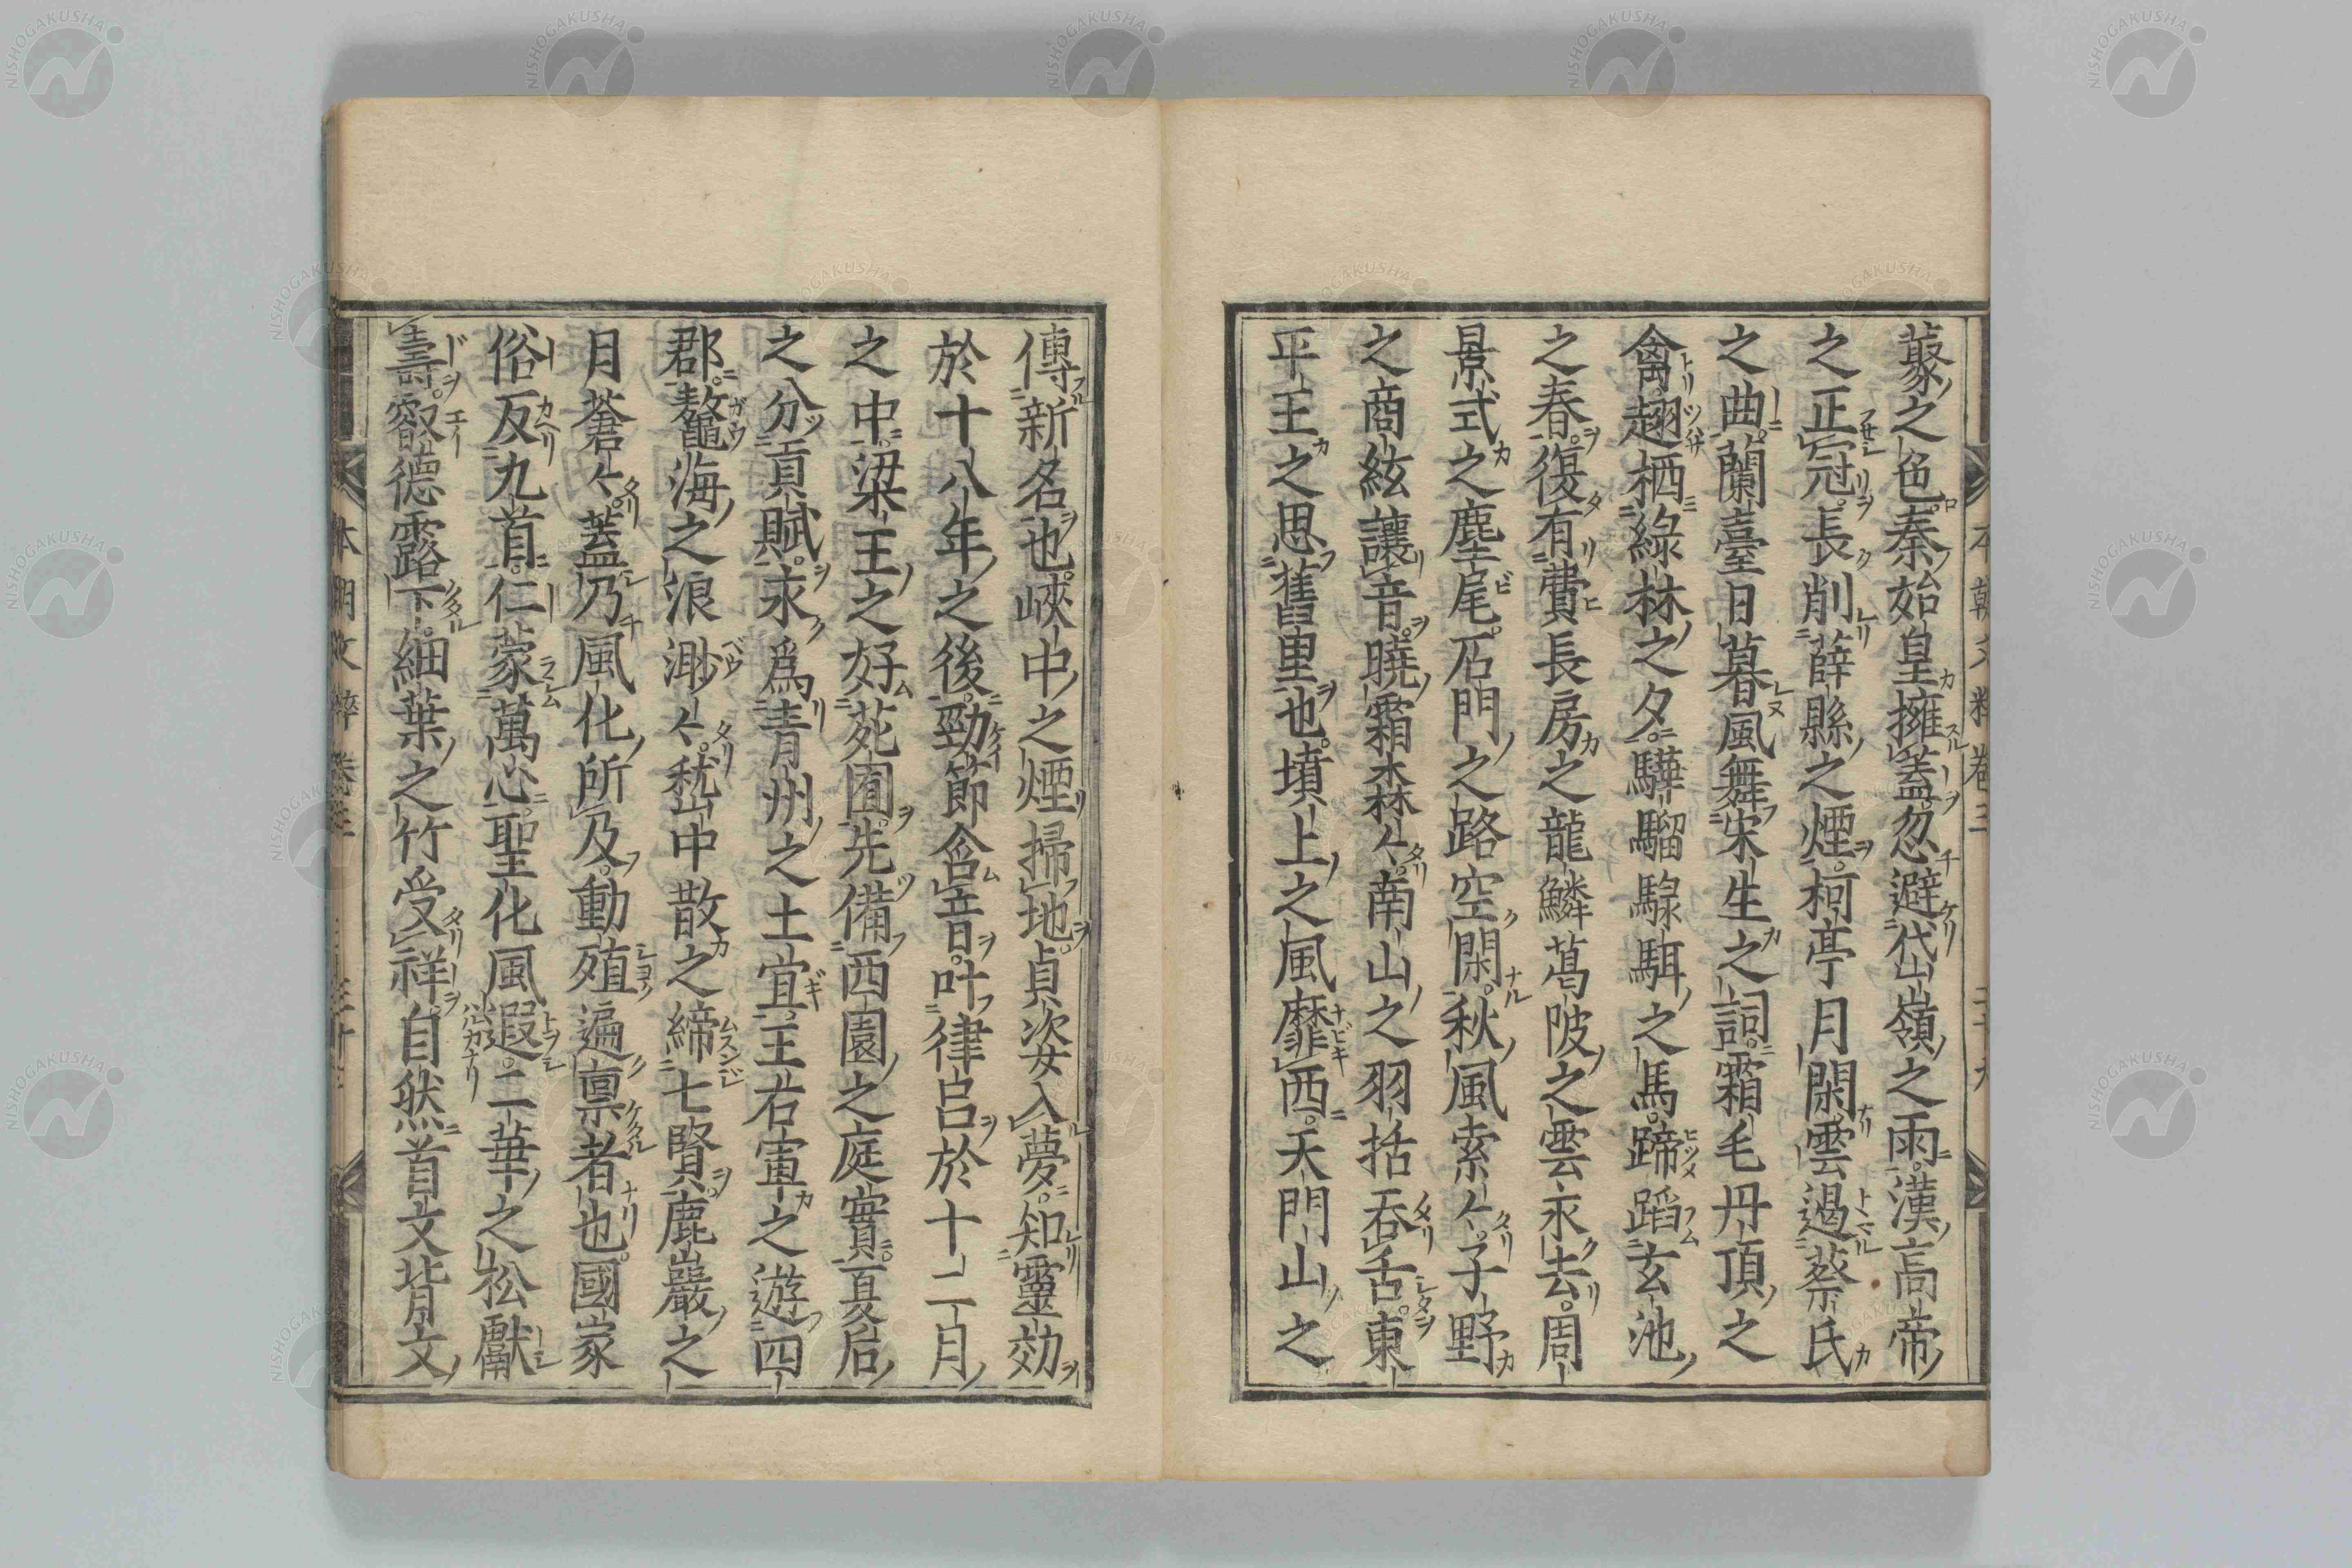 蕞之色秦始皇擁蓋忽避岱嶺之雨漢高帝
之正冠長削薛縣之煙柯亭月閑雲遏蔡氏
之曲蘭臺日暮風舞宋生之詞霜毛丹頂之
禽翅栖綠林之夕驊騮騄駬之馬蹄蹈玄池
之春復有費長房之龍鱗葛陂之雲永去周
景式之塵尾石門之路空閑秋風索々子野
之商絃讓音曉霜森々南山之羽括吞舌東
平王之思舊里也墳上之風靡西天門山之
傳新名也峽中之煙掃地貞姿入夢知靈効
於十八年之後勁節含音叶律呂於十二月
之中梁王之好苑囿先備西園之庭實夏后
之分貢賦求爲青州之土宜王右軍之遊四
郡鼇海之浪渺々嵇中散之締七賢鹿巖之
月蒼々蓋乃風化所及動殖遍稟者也國家
俗反九首仁蒙萬心聖化風遐二華之松獻
壽叡德露下細葉之竹受祥自然首文背文
本朝文粹卷三
本朝文粹卷三
NISHOGAKUSHA